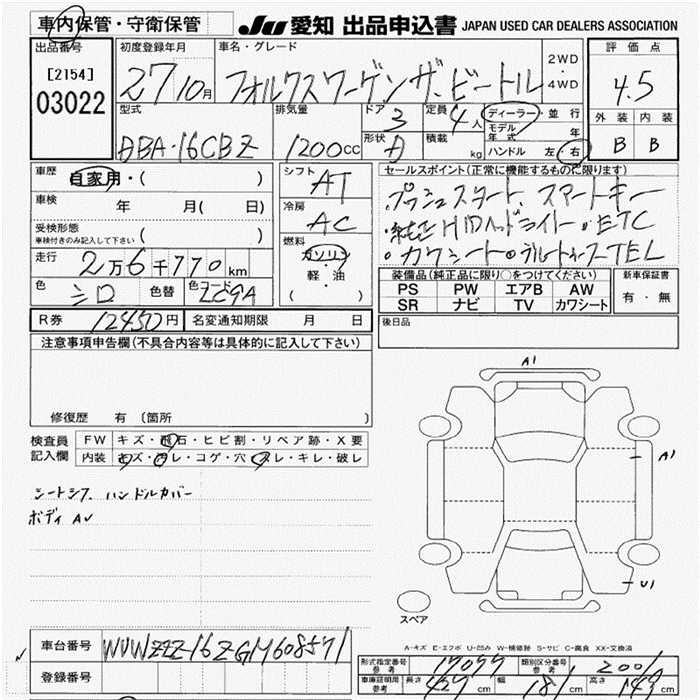 車内保管・守衛保管
JU 愛知 出品申込書 JAPAN USED CAR DEALERS ASSOCIATION
出品番号
[2154]
03022
初度登録年月
27/10月
車名・グレード
フォルクスワーゲン ザ・ビートル
2WD
・
4WD
評価点
4.5
外装 内装
B B
型式
DBA・16CBZ
排気量
1200CC
ドア
3
形状
定員
4人
積載
kg
ディーラー・並行
モデル年式 年
ハンドル 左・右
車歴 自家用・( )
車検 年 月( 日)
受検形態
車検付きのみ記入して下さい ( )
走行 2万6千770km
色 シロ 色替 色コード LC9A
シフト
AT
冷房
AC
燃料
ガソリン
軽・油
( )
セールスポイント(正常に機能するものに限ります)
・プッシュスタート、スマートキー
・純正HIDヘッドライト・ETC
・カワシート・ブルートゥースTEL
装備品(純正品に限り○をつけてください)
PS PW エアB AW
SR ナビ TV カワシート
新車保証書
有・無
R券 12450円 名変通知期限 月 日
後日品
注意事項申告欄(不具合内容等は具体的に記入して下さい)
修復歴 有 〔箇所 〕
検査員記入欄
FW キズ・飛石・ヒビ割・リペア跡・X要
内装 キズ・ヨゴレ・コゲ・穴・スレ・キレ・破レ
シートシワ ハンドルカバー
ボディ AU
A1
A1
U1
スペア
A-キズ E-エクボ U-凹み W-補修跡 S-サビ C-腐食 XX-交換済
車台番号 WVWZZZ16ZGM608571
登録番号
形式指定番号 参考 17077 類別区分番号 参考 2001
車庫証明用 参考 長さ 429cm 幅 181cm 高さ 149cm